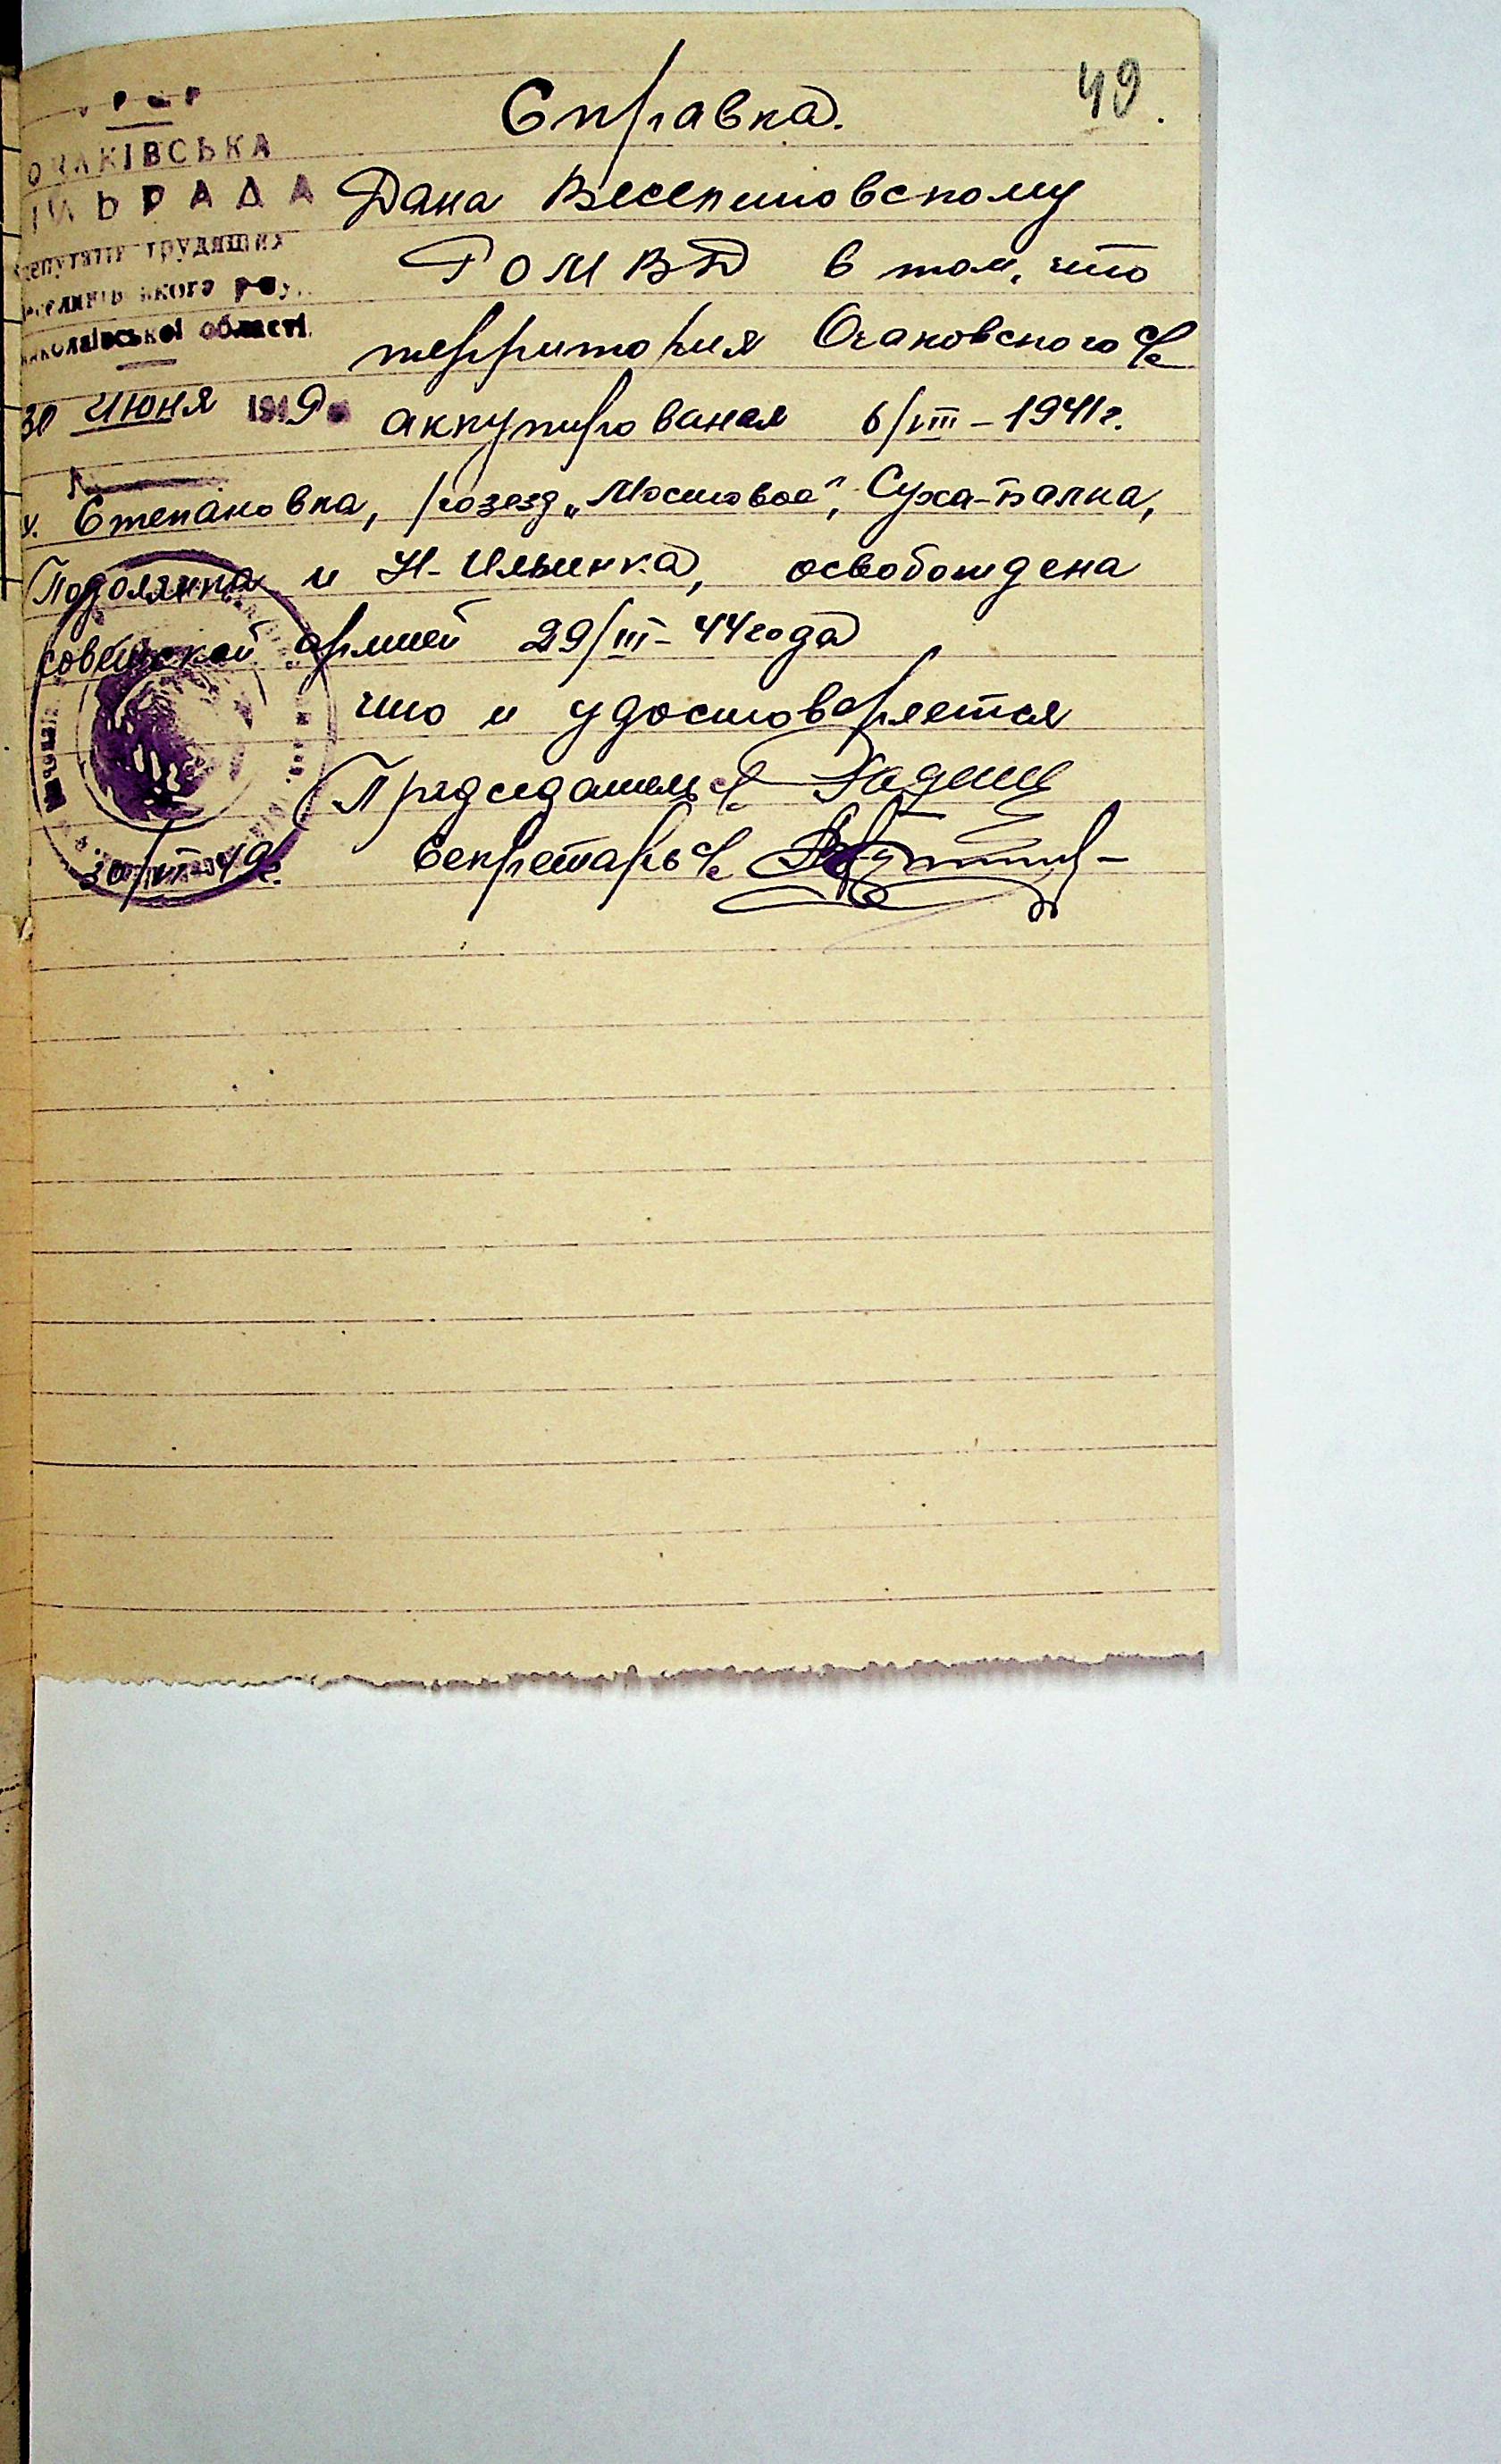 49.
Справка.
ОЧАКІВСЬКА
ЬРАДА
депутатів трудящих
ського
миколаївської області.
30 Июня 1949
Дана Веселиновскому
РОМВД в том, что
территория Очаковского с/с
аккупирования 6/VIII - 1941 г.
Степановка, розезд „Мостовое", Суха-Балка,
Подолянка и Н-Ильинка, освобождена
советской армией 29/III - 44 года
что и удостоверяется
Председатель с/с
Секретарь с/с
30/VI 49г.